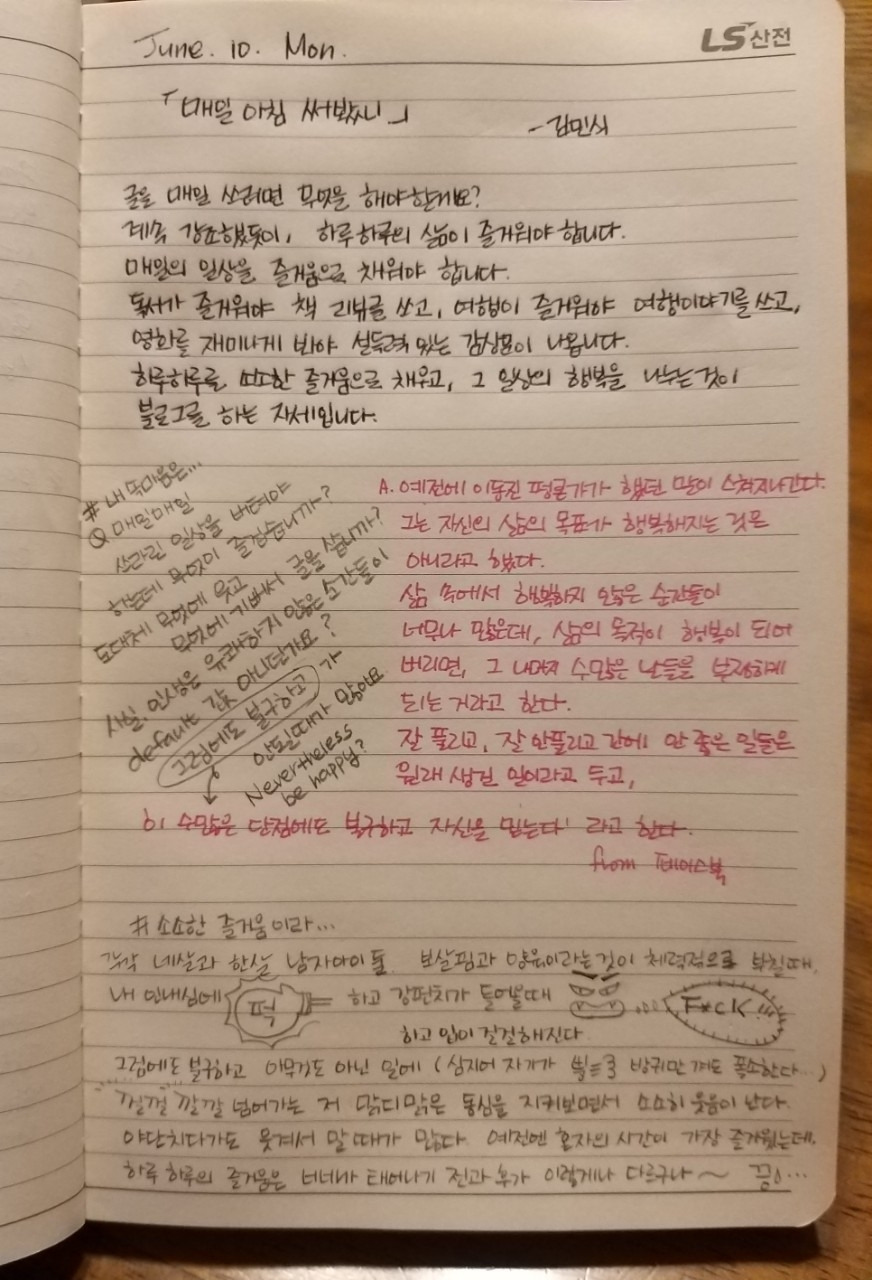 June. 10. Mon.
LS 산전
「매일 아침 써봤니」
- 김민식
글을 매일 쓰려면 무엇을 해야한데요?
계속 강조했듯이, 하루하루의 삶이 즐거워야 합니다.
매일의 일상을 즐거움으로 채워야 합니다.
독서가 즐거워야 책 리뷰를 쓰고, 여행이 즐거워야 여행이야기를 쓰고,
영화를 재미나게 봐야 설득력 있는 감상문이 나옵니다.
하루하루를 또또한 즐거움으로 채우고, 그 일상의 행복을 나누는것이
블로그를 하는 자세입니다.
# 내 속마음은...
Q 매일매일
쓰라린 일상을 버텨야
하는데 무엇이 즐겁습니까?
도대체 무엇에 웃고
무엇에 기뻐서 글을 씁니까?
사실, 인생은 유쾌하지 않은 순간들이
default 값 아니던가요?
그럼에도 불구하고 가
안될때가 많아요
Nevertheless
be happy?
A. 예전에 이동진 평론가가 했던 말이 스쳐지나간다.
그는 자신의 삶의 목표가 행복해지는 것은
아니라고 했다.
삶 속에서 행복하지 않은 순간들이
너무나 많은데, 삶의 목적이 행복이 되어
버리면, 그 나머지 수많은 날들을 부정하게
되는 거라고 한다.
잘 풀리고, 잘 안풀리고 간에 안 좋은 일들은
원래 생긴 일이라고 두고,
이 수많은 단점에도 불구하고 자신을 믿는다' 라고 한다.
from 페이스북
# 소소한 즐거움이라...
각각 네살과 한살 남자아이들 보살핌과 양육이라는것이 체력적으로 부칠때,
내 인내심에 퍽 하고 강펀치가 들어올때 F*cK !!!
하고 입이 걸걸해진다
그럼에도 불구하고 아무것도 아닌 일에 (심지어 자기가 뿡 방귀만 껴도 폭소한다...)
"껄껄" 깔깔 넘어가는 저 맑디맑은 동심을 지켜보면서 소소히 웃음이 난다.
야단치다가도 웃겨서 말 때가 많다. 예전엔 혼자의 시간이 가장 즐거웠는데,
하루 하루의 즐거움은 너네가 태어나기 전과 후가 이렇게나 다르구나~ 끙...